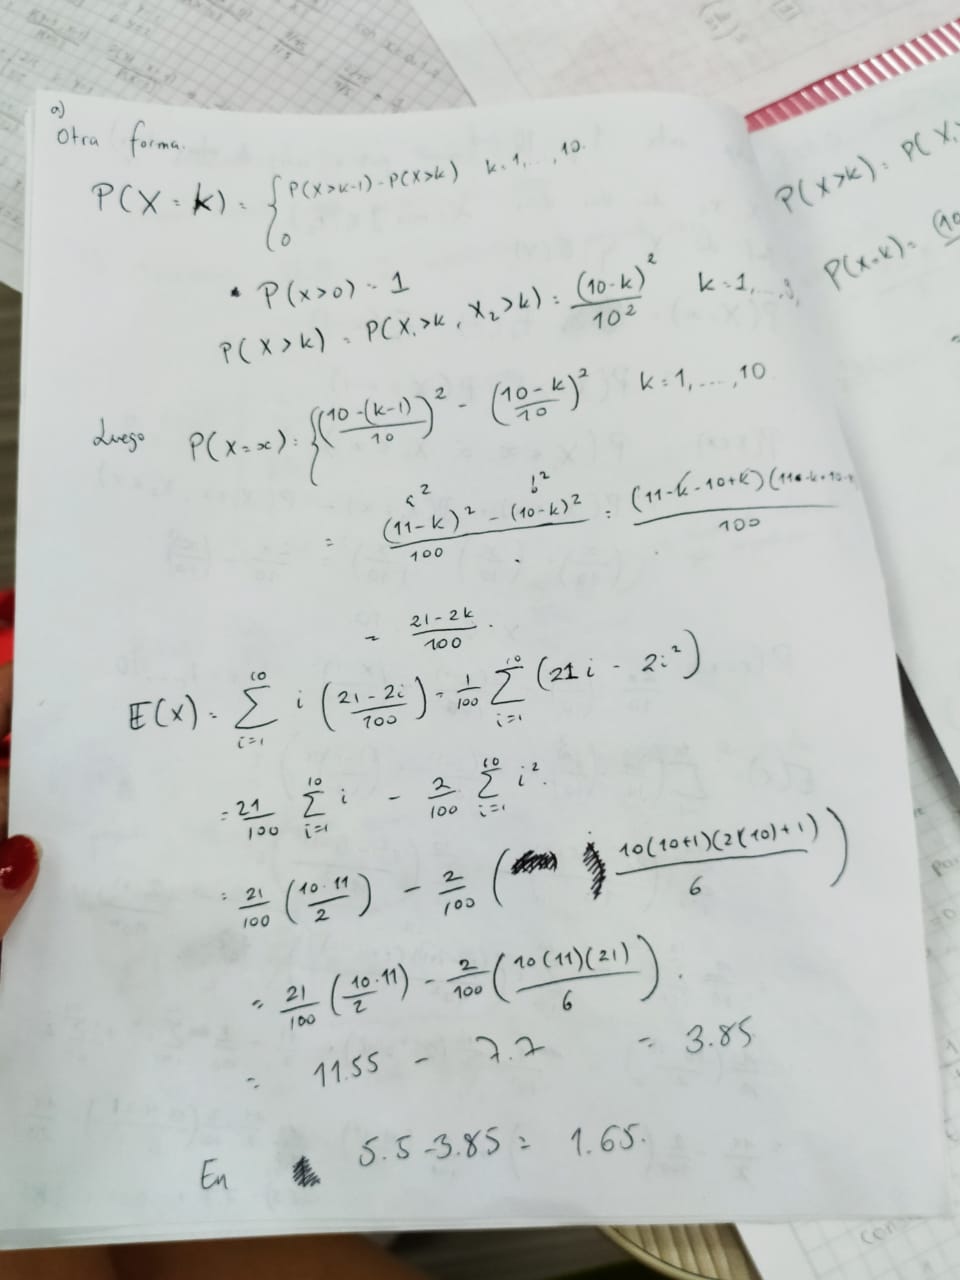 a)
Otra forma.
P(X = k) = { P(X>k-1) - P(X>k) k=1,...,10.
0
• P(x>0) = 1
P(X>k) = P(X₁>k, X₂>k) = (10-k)²/10² k=1,...,
Luego P(X=x) = { ((10-(k-1))/10)² - ((10-k)/10)² k=1,...,10
a² b²
= ((11-k)² - (10-k)²)/100 = (11-k-10+k)(11-k+10-k/100
= (21-2k)/100.
E(X) = ∑_{i=1}^{10} i ((21-2i)/100) = 1/100 ∑_{i=1}^{10} (21i - 2i²)
= 21/100 ∑_{i=1}^{10} i - 2/100 ∑_{i=1}^{10} i².
= 21/100 (10·11/2) - 2/100 (10(10+1)(2(10)+1)/6)
= 21/100 (10·11/2) - 2/100 (10(11)(21)/6).
= 11.55 - 7.7 = 3.85
En 5.5-3.85 = 1.65.
P(X>k) = P(X₁
P(X=k) = (10